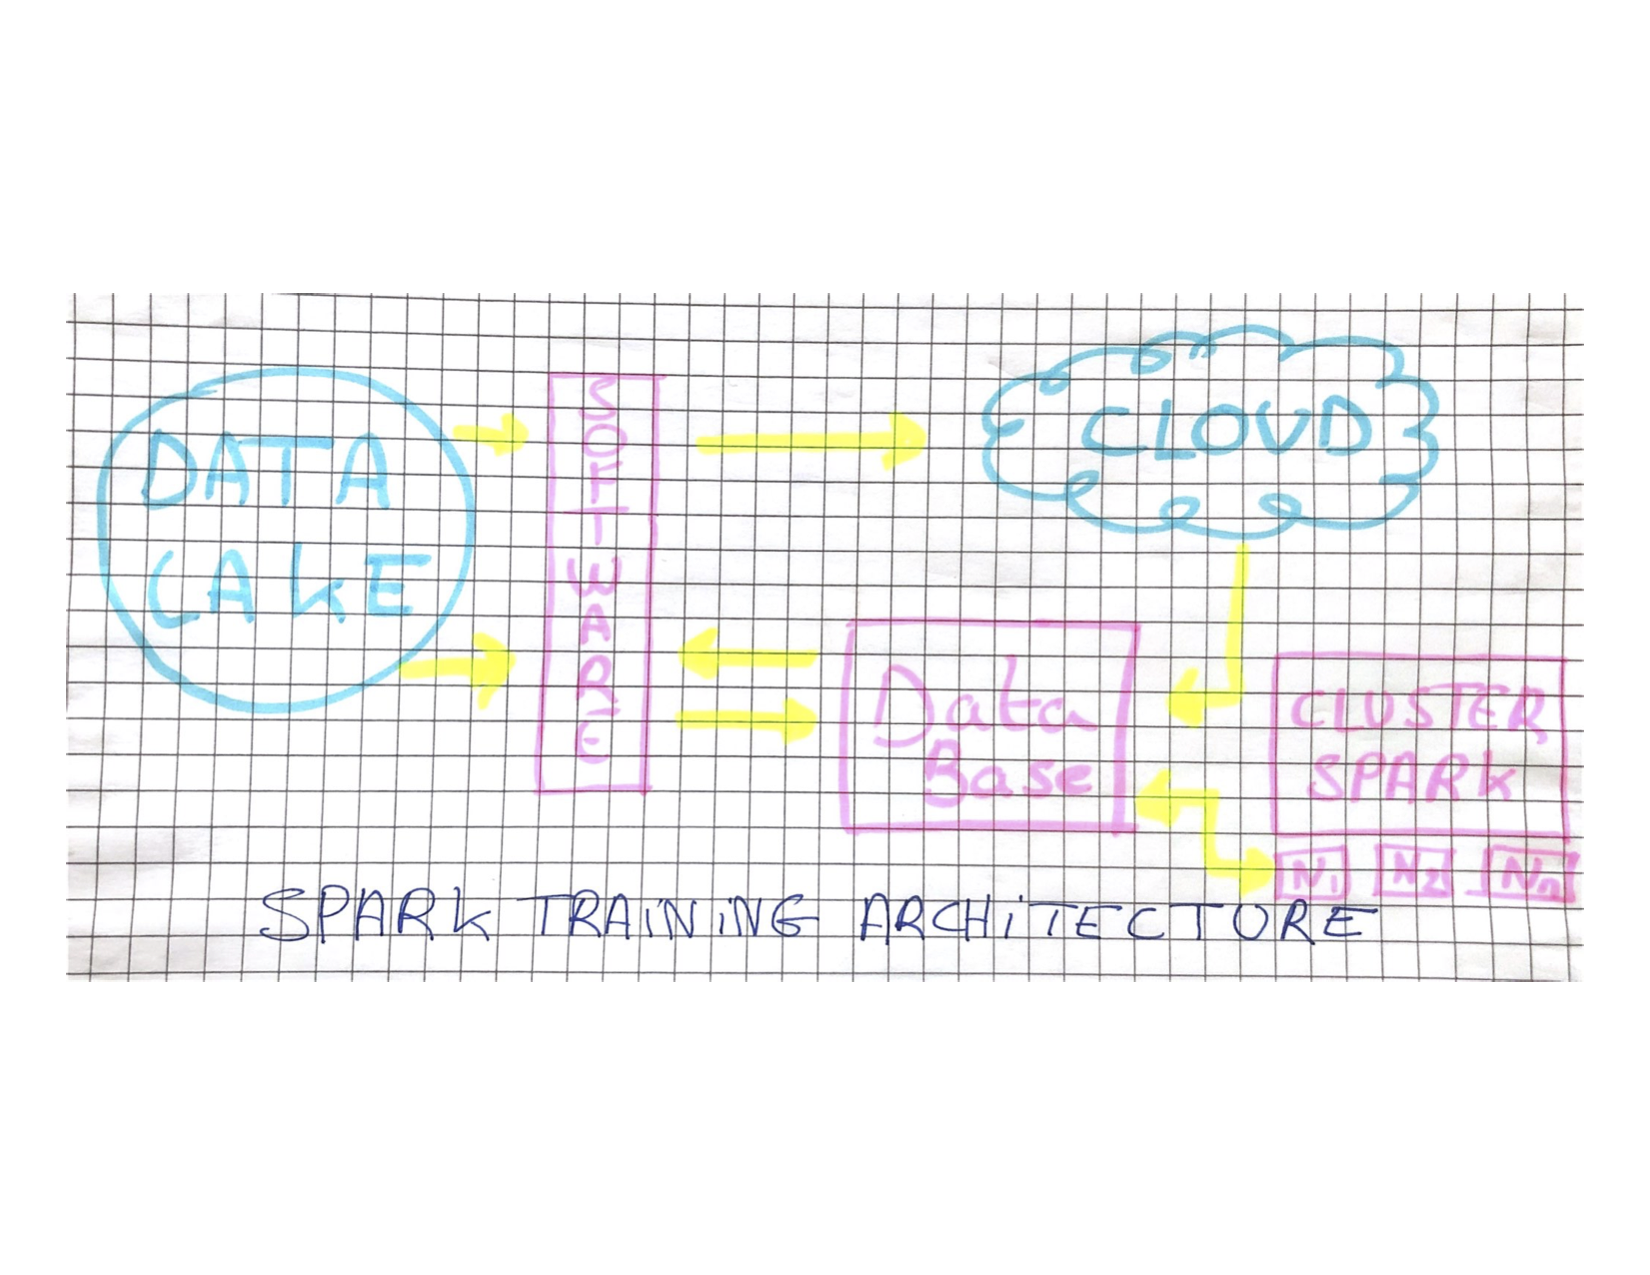 DATA
LAKE
SOFTWARE
CLOUD
Data
Base
CLUSTER
SPARK
N1 N2 Nn
SPARK TRAiNiNG ARCHiTECTURE